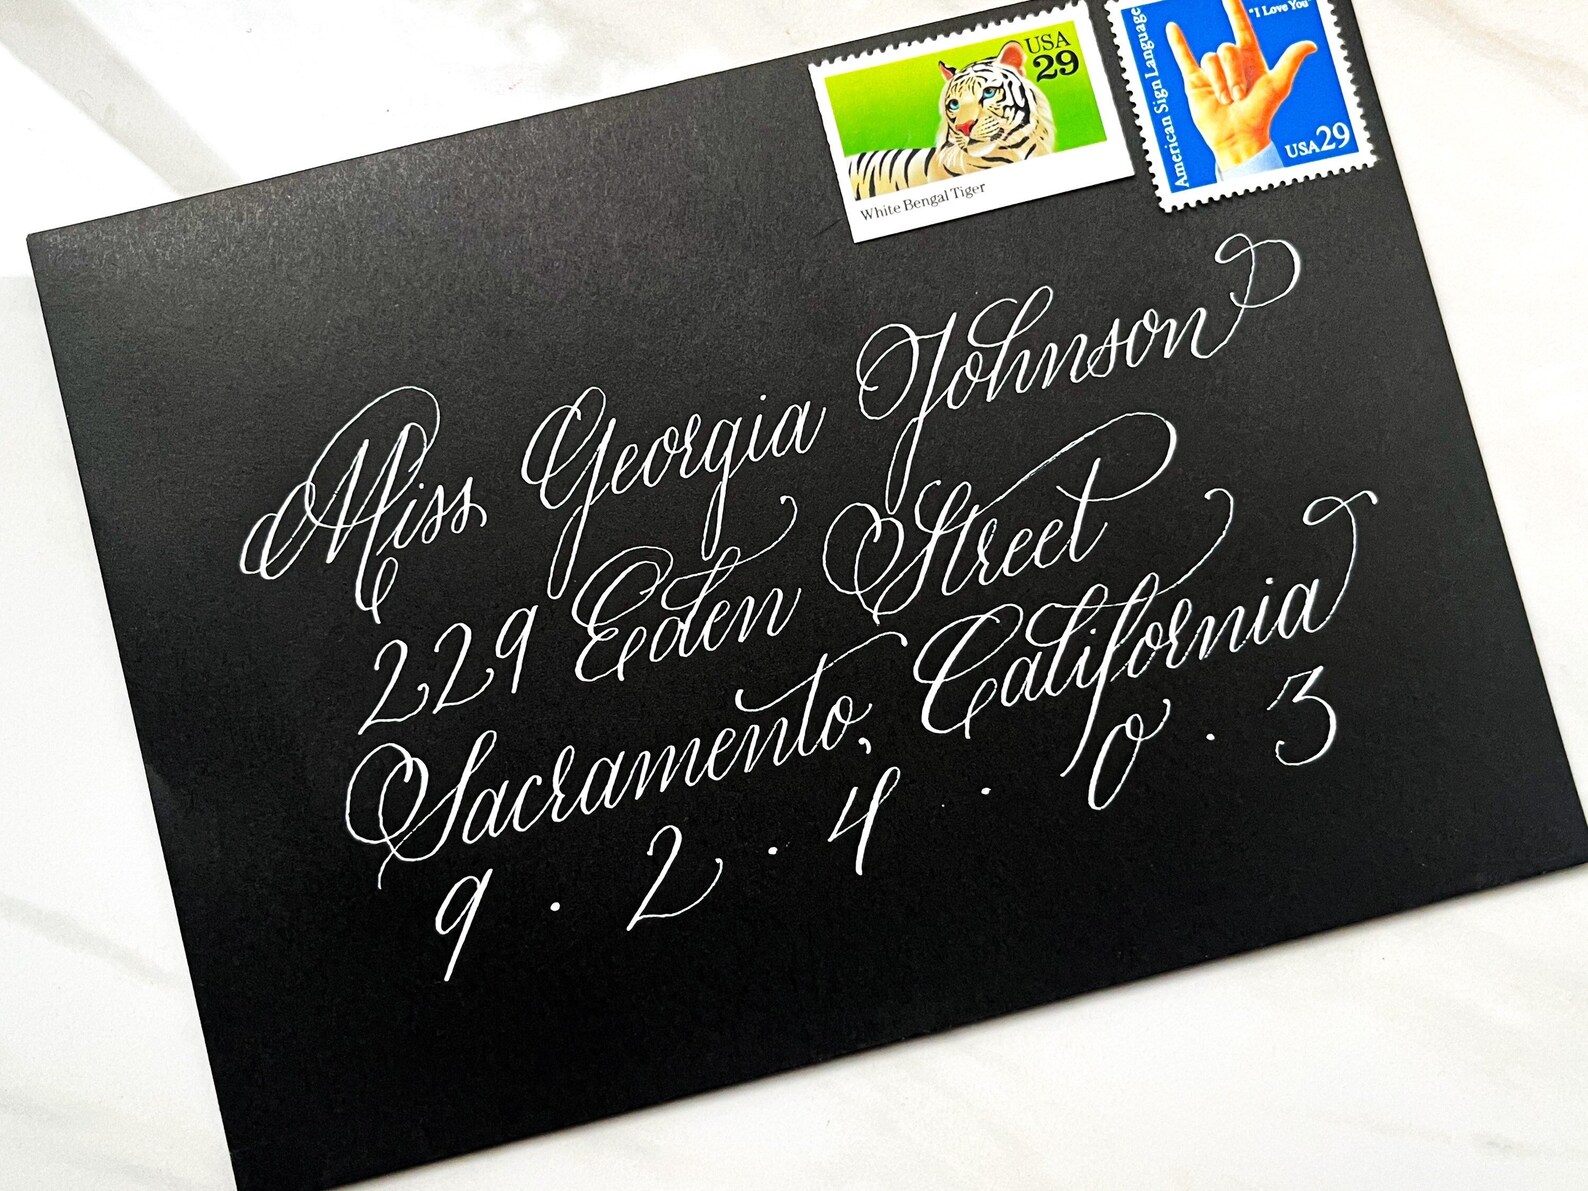 USA
29
White Bengal Tiger
American Sign Language
"I Love You"
USA29
Miss Georgia Johnson
229 Eden Street
Sacramento, California
9 . 2 . 4 . 0 . 3